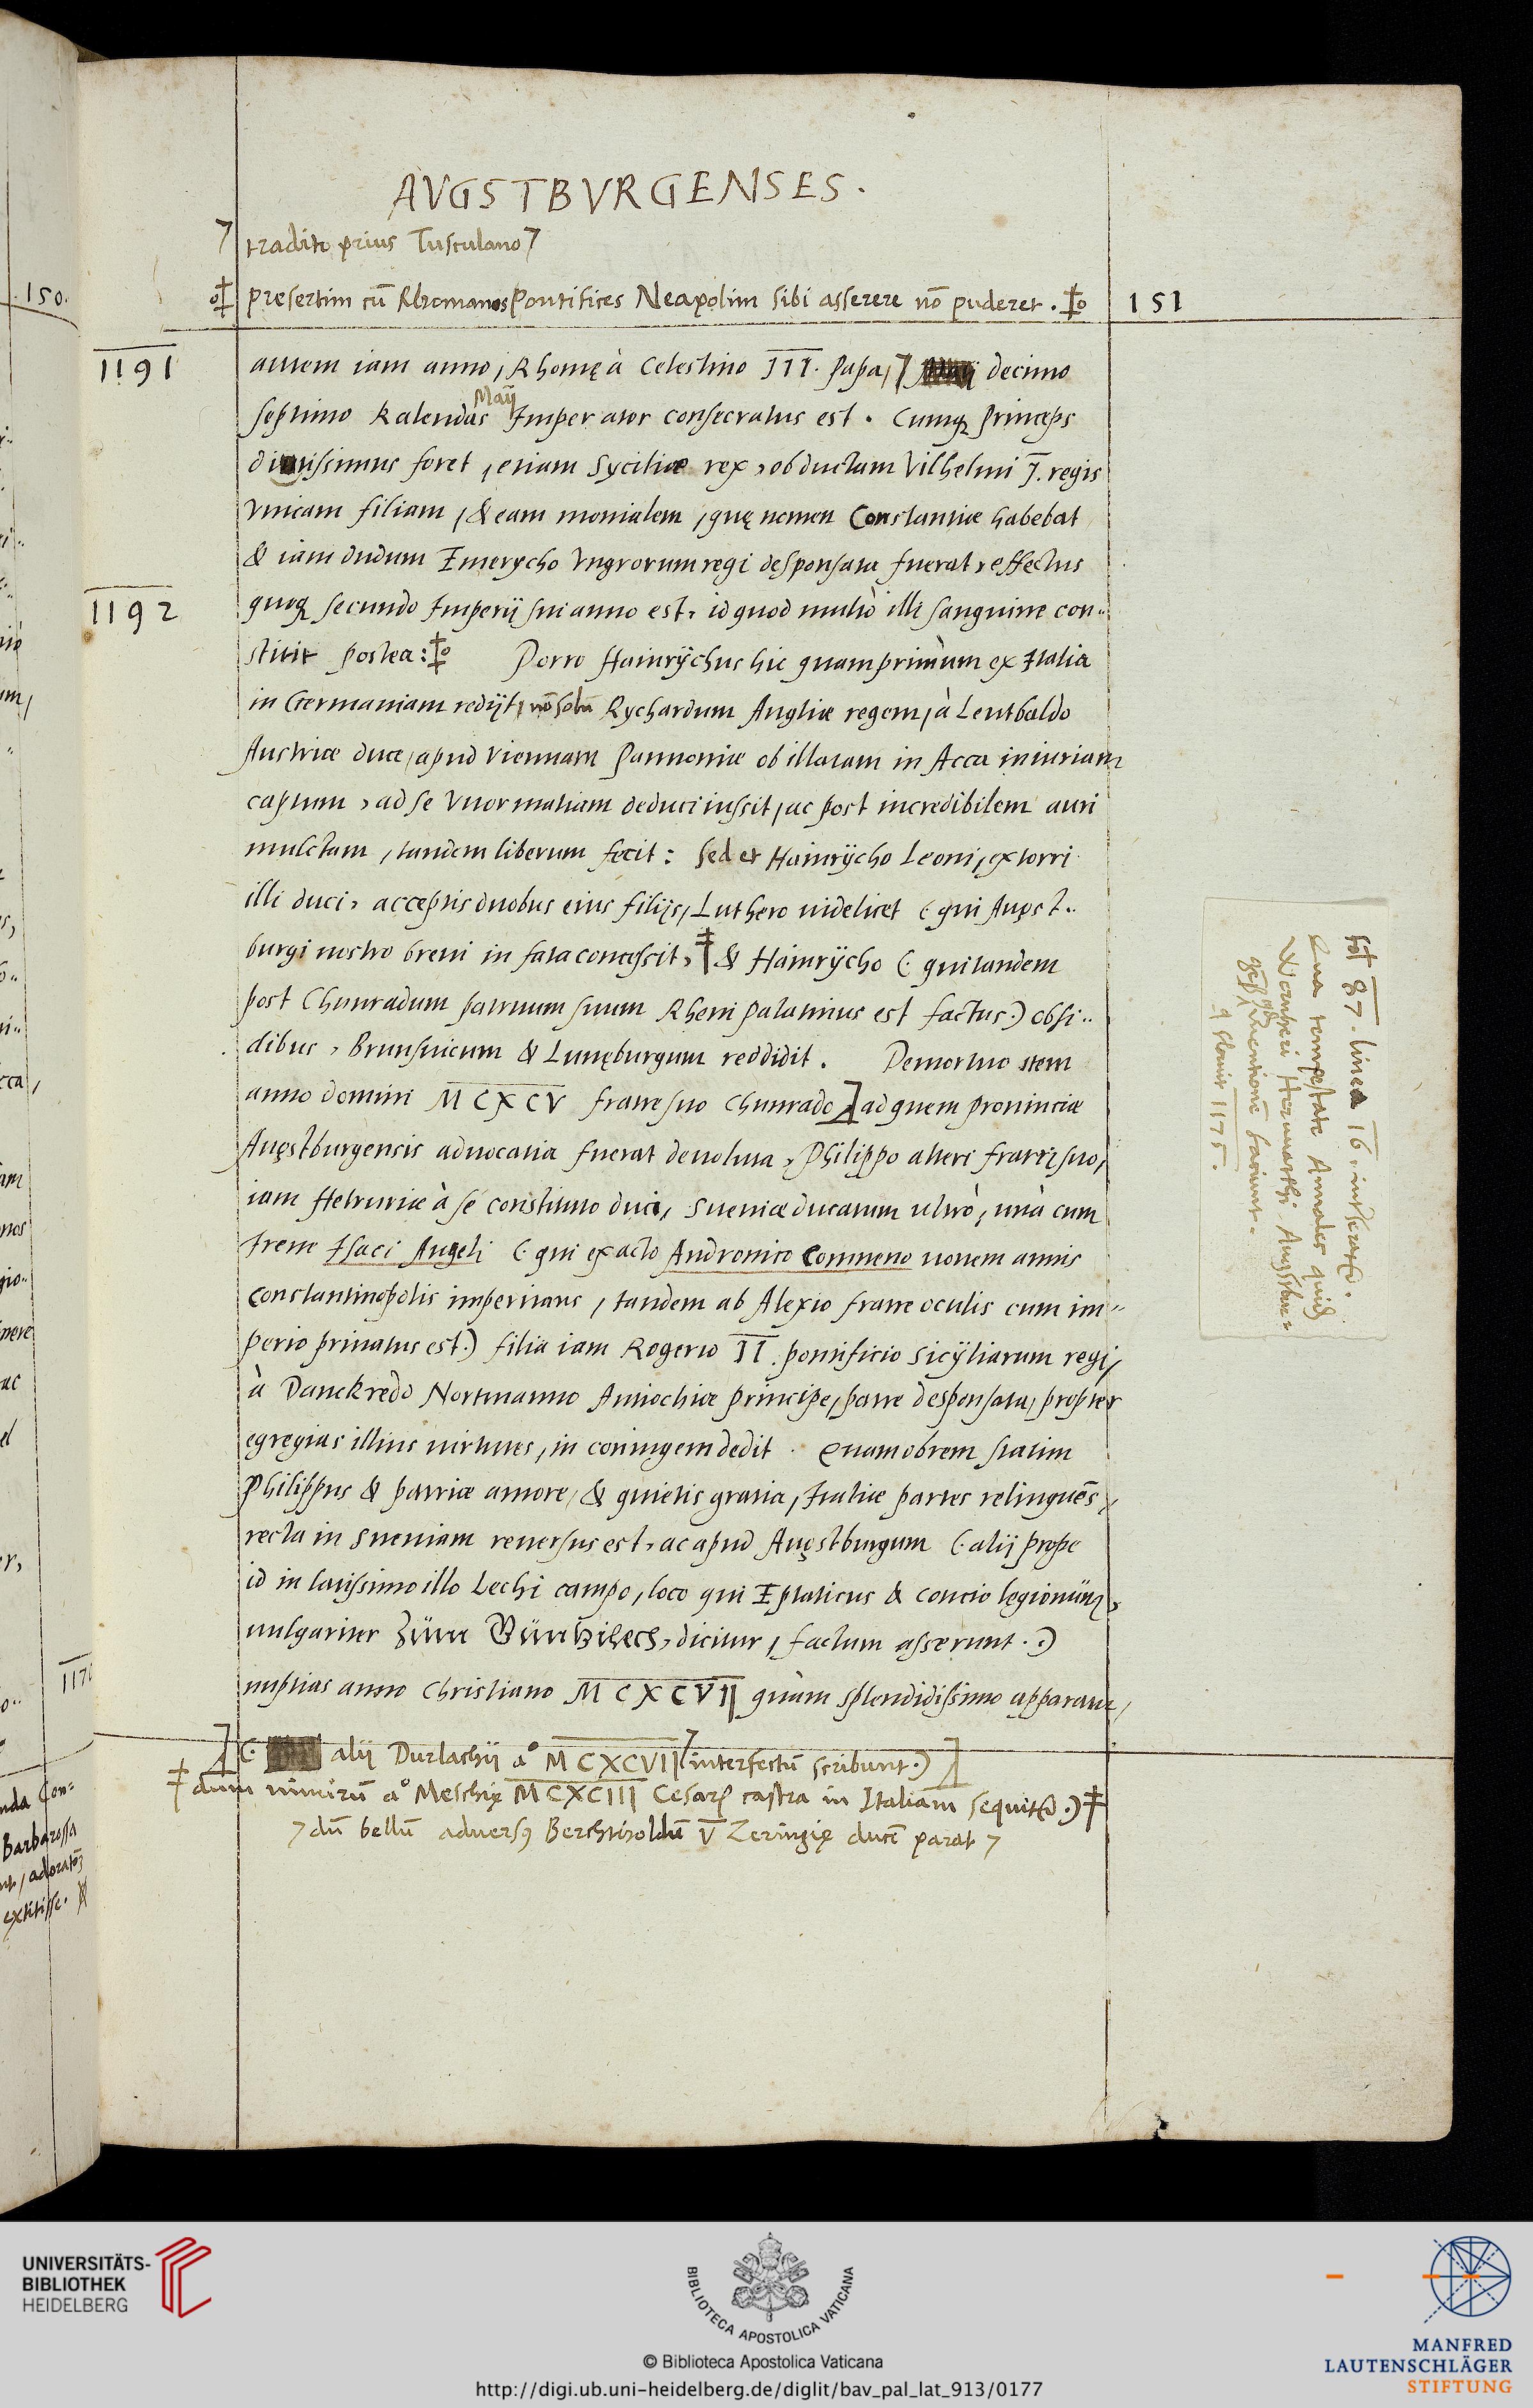 AVGSTBVRGENSES.
tradito prius Tusculano
presertim cū Rhomanos Pontifices Neapolim sibi asserere nō puderet.
151
150.
1191
autem iam anno, Rhomę à Celestino III. Papa, decimo
Maij
septimo Kalendas Imperator consecratus est. Cumq; princeps
ditissimus foret, etiam Syciliæ rex, ob ductam Vilhelmi I. regis
vnicam filiam, & eam monialem, quę nomen Constantiæ habebat
& iam dudum Emerycho Vngrorum regi desponsata fuerat, effectus
1192
quoq; secundo Imperij sui anno est, id quod multò illi sanguine con..
stitit postea: Porro Hainrychus hic quamprimùm ex Italia
in Germaniam redijt, nō solū Rychardum Angliæ regem, à Leutbaldo
Austriæ duce, apud Viennam Pannoniæ ob illatam in Acca iniuriam
captum, ad se Vuormatiam deduci iussit, ac post incredibilem auri
mulctam, tandem liberum fecit: sed et Hainrycho Leoni, extorri
illi duci, acceptis duobus eius filijs, Luthero videlicet (qui Augst..
burgi nostro breui in fata concessit, & Hainrycho (qui tandem
post Chunradum patruum suum Rheni palatinus est factus.) obsi..
dibus, Brunsuicum & Lunęburgum reddidit. Demortuo item
anno domini MCXCV fratre suo Chunrado ad quem prouinciæ
Augstburgensis aduocatia fuerat deuoluta, Philippo alteri fratri suo,
iam Hetruriæ à se constituto duci, Sueuiæ ducatum ultrò, unà cum
Irene Isaci Angeli (qui exacto Andronico Comneno nouem annis
Constantinopolis imperitans, tandem ab Alexio fratre oculis cum im..
perio priuatus est.) filia iam Rogerio II. pontificio Sicyliarum regi,
à Danckredo Nortmanno Antiochiæ principe, patre desponsata, propter
egregias illius uirtutes, in coniugem dedit. Quamobrem statim
Philippus & patriæ amore, & quietis gratia, Italiæ partes relinquēs,
recta in Sueuiam reuersus est, ac apud Augstburgum (alij prope
id in latissimo illo Lechi campo, loco qui Eptaticus & concio legionum,
uulgariter Zům Gůntzilech, dicitur, factum asserunt.)
nuptias anno Christiano MCXCVII quàm splendidissimo apparatu,
(alij Durlachij a° MCXCVII interfectū scribunt.)
dum nimirū a° Meschię MCXCIII Cesaris castra in Italiam sequitur.)
dū bellū adversus Berchtholdū V Zeringię ducē parat
fol 87. linea 16. inscribatur.
Qua tempestate Annales quidē
gēs mentionē faciunt.
1175.
1170
Barbarossa
extitisse.
UNIVERSITÄTS-
BIBLIOTHEK
HEIDELBERG
BIBLIOTECA APOSTOLICA VATICANA
© Biblioteca Apostolica Vaticana
http://digi.ub.uni-heidelberg.de/diglit/bav_pal_lat_913/0177
MANFRED
LAUTENSCHLÄGER
STIFTUNG